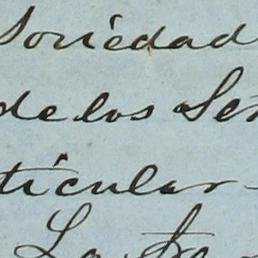 Sociedad
de los Se
ticular
La